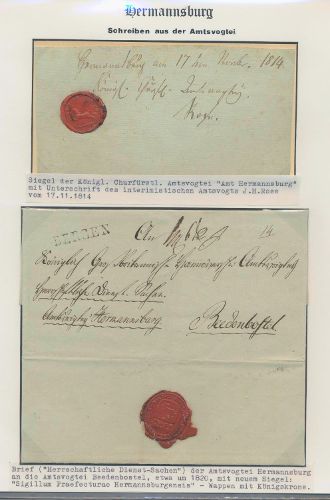 Hermannsburg
Schreiben aus der Amtsvogtei
Hermannsburg am 17 ten 1814.
Königl. Churf.
Siegel der Königl. Churfürstl. Amtsvogtei "Amt Hermannsburg"
mit Unterschrift des interimistischen Amtsvogts J.H.Rose
vom 17.11.1814
BERGEN
An
14
Königlich
Herrschaftliche Dienst Sachen
Amtsvogtey Hermansburg Beedenbostel
Brief ("Herrschaftliche Dienst-Sachen") der Amtsvogtei Hermannsburg
an die Amtsvogtei Beedenbostel, etwa um 1820, mit neuem Siegel:
"Sigillum Praefecturae Hermannsburgensis" - Wappen mit Königskrone.